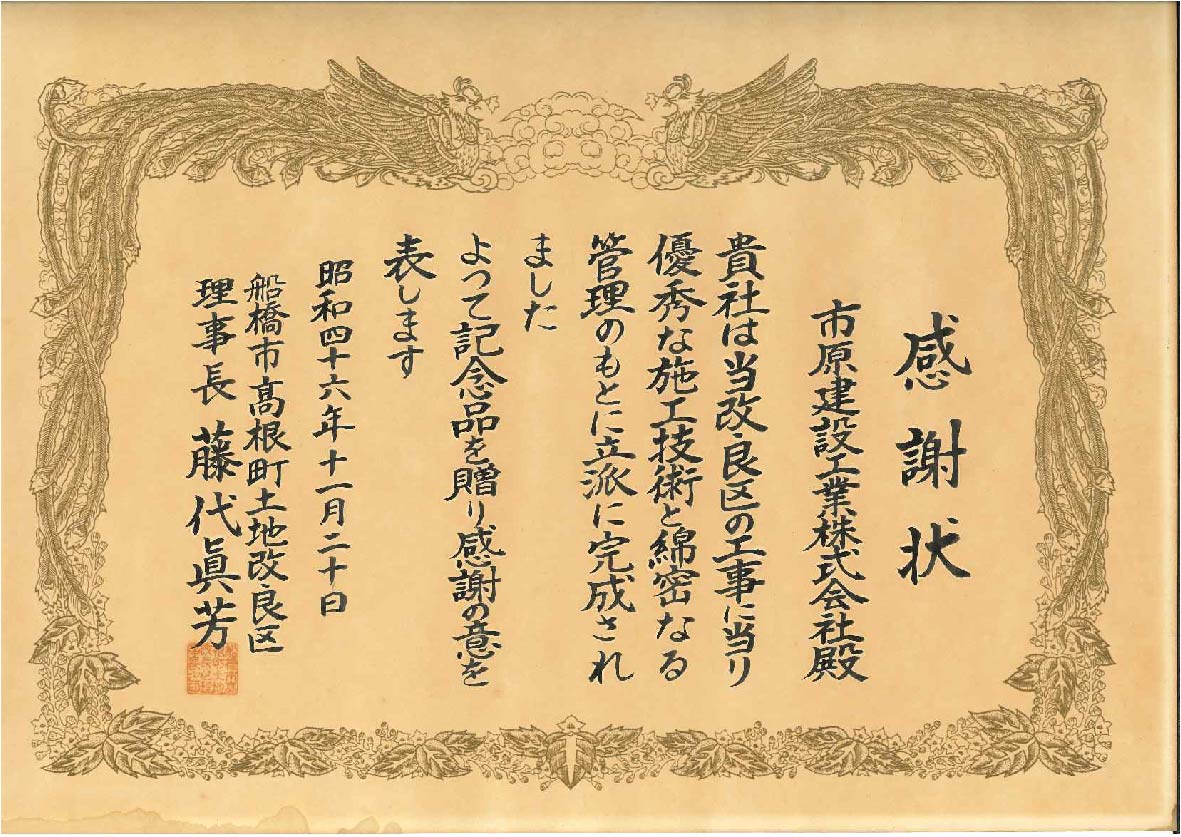 感謝状
市原建設工業株式会社殿
貴社は当改良区の工事に当り
優秀な施工技術と綿密なる
管理のもとに立派に完成され
ました
よつて記念品を贈り感謝の意を
表します
昭和四十六年十一月二十日
船橋市高根町土地改良区
理事長 藤代眞芳